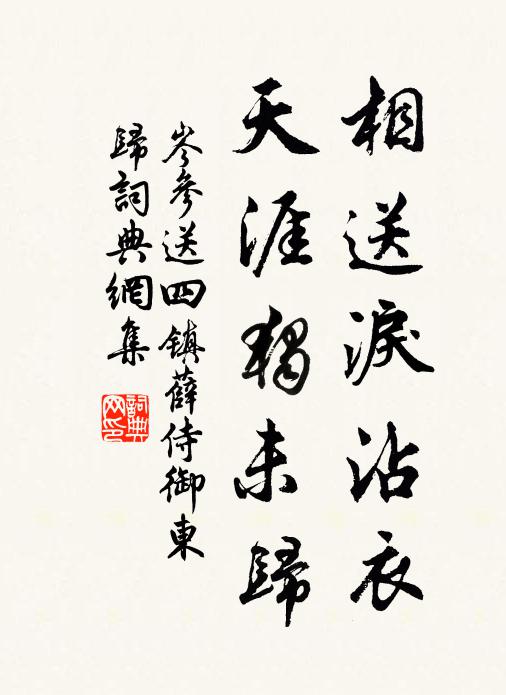 相送淚沾衣
天涯獨未歸
岑參送四鎮薛侍御東
歸詞典網集
詞典网印